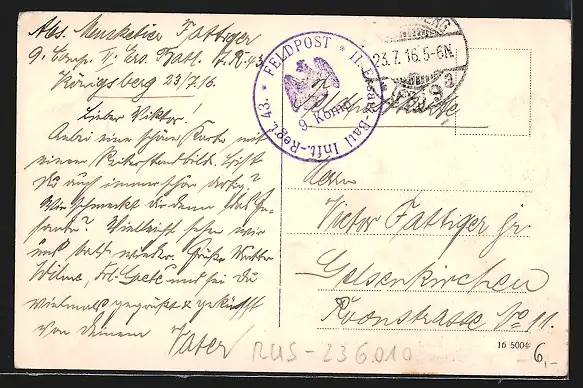 Abs. Musketier Fattiger
9. Comp. II. Ers. Batl. I.R. 43
Königsberg 23/7 16.
Lieber Viktor!
Anbei eine schöne Karte mit
einem Reiterstandbild. Bist
Du auch immer schön artig?
Wie schmeckt dir denn das
Vielleicht sehen wir
uns bald wieder. Grüße Mutter
und sei du
vielmals gegrüßt & geküsst
von deinem
Vater
* FELDPOST * II. Ersatz-Batl Inft.-Regt. 43.
9. Komp.
23.7.16.5-6N.
Feldpostkarte
Herrn
Victor Fattiger jr
Gelsenkirchen
Roonstrasse No 11.
RUS-236010
16 5004
6,-